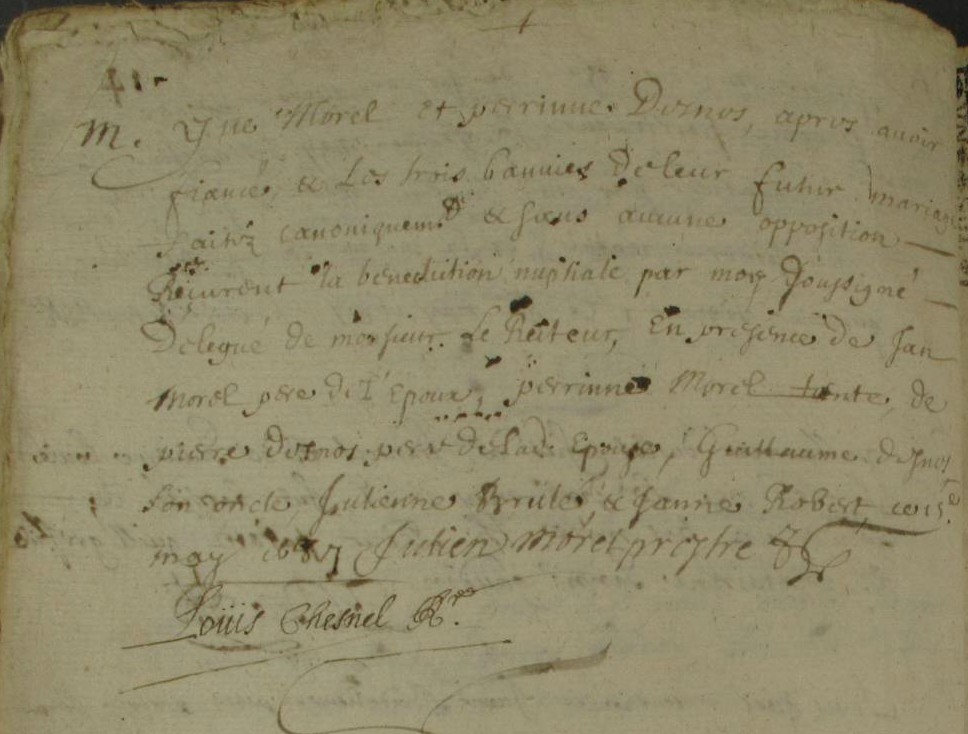 41.
m. Yve Morel et perrinne Desnos, apres avoir
fiancé, & Les trois bannies de leur futur mariage
faitez canoniquem.t & sans aucune opposition
Reçurent la benediction nuptiale par moy Soussigné
Delegué de monsieur Le Recteur, En presence de Jan
Morel pere de l'Epoux, perrinne Morel tente, de
pierre desnos pere de Lad. Epouse, Guillaume desnos
son oncle, Julienne Brulé, & Janne Robert, ce 15.e
may 1687 Julien Morel prestre
Louis Chesnel R.